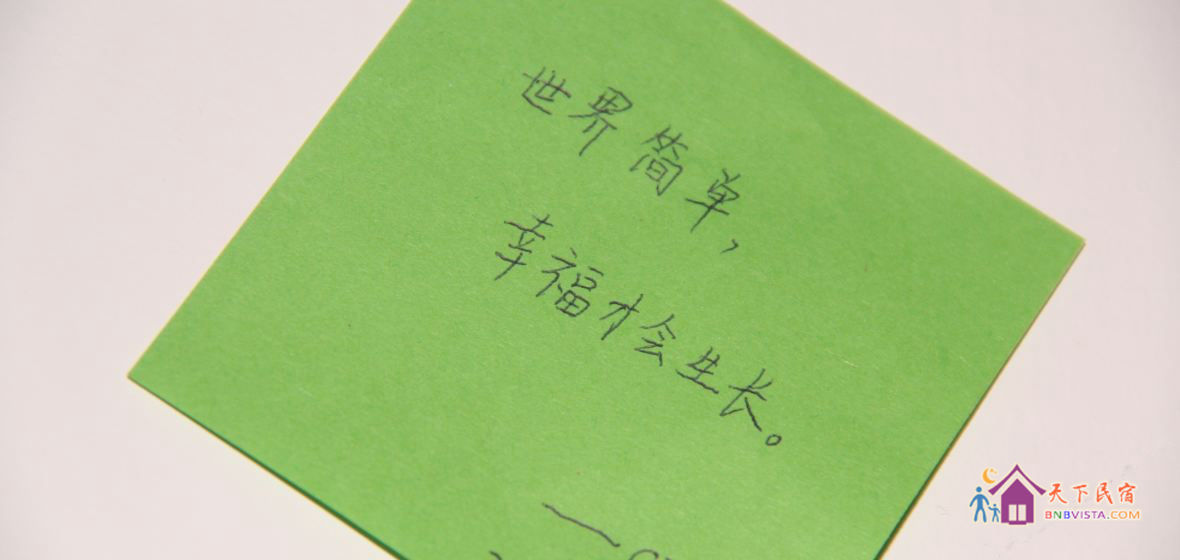 世界简单，
幸福才会生长。
天下民宿
BNBVISTA.COM